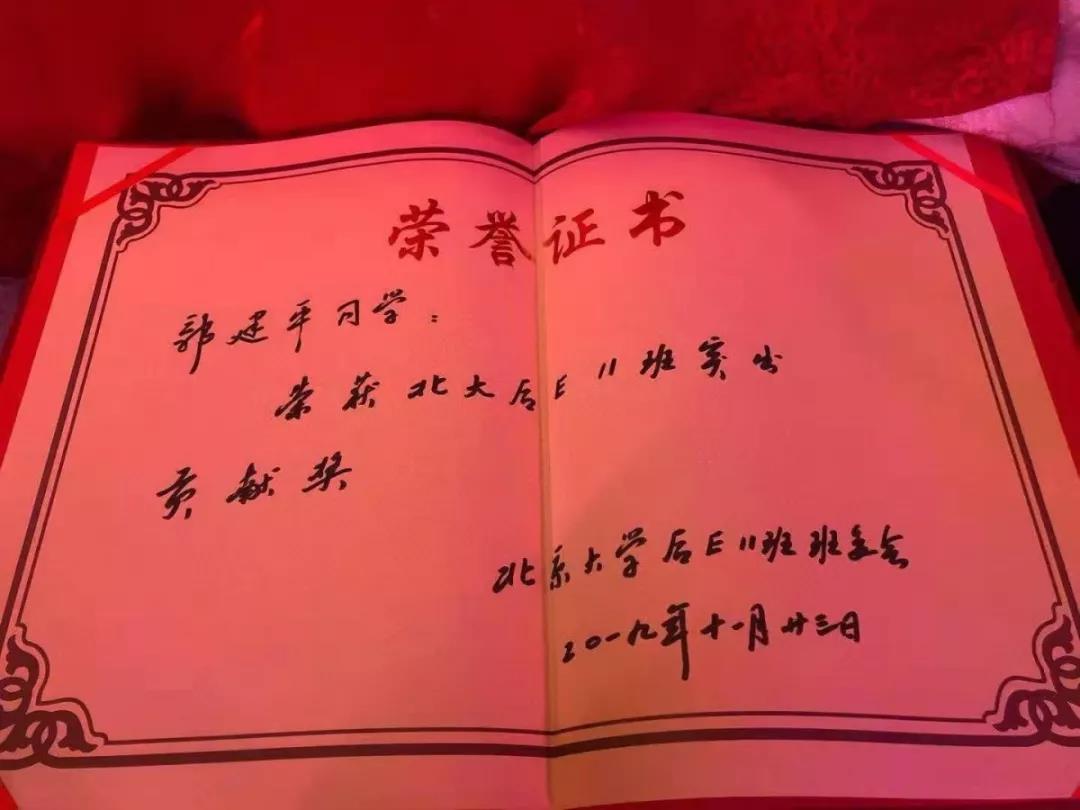 荣誉证书
郭建平同学：
荣获北大后E11班突出
贡献奖
北京大学后E11班班委会
二〇一九年十一月廿三日